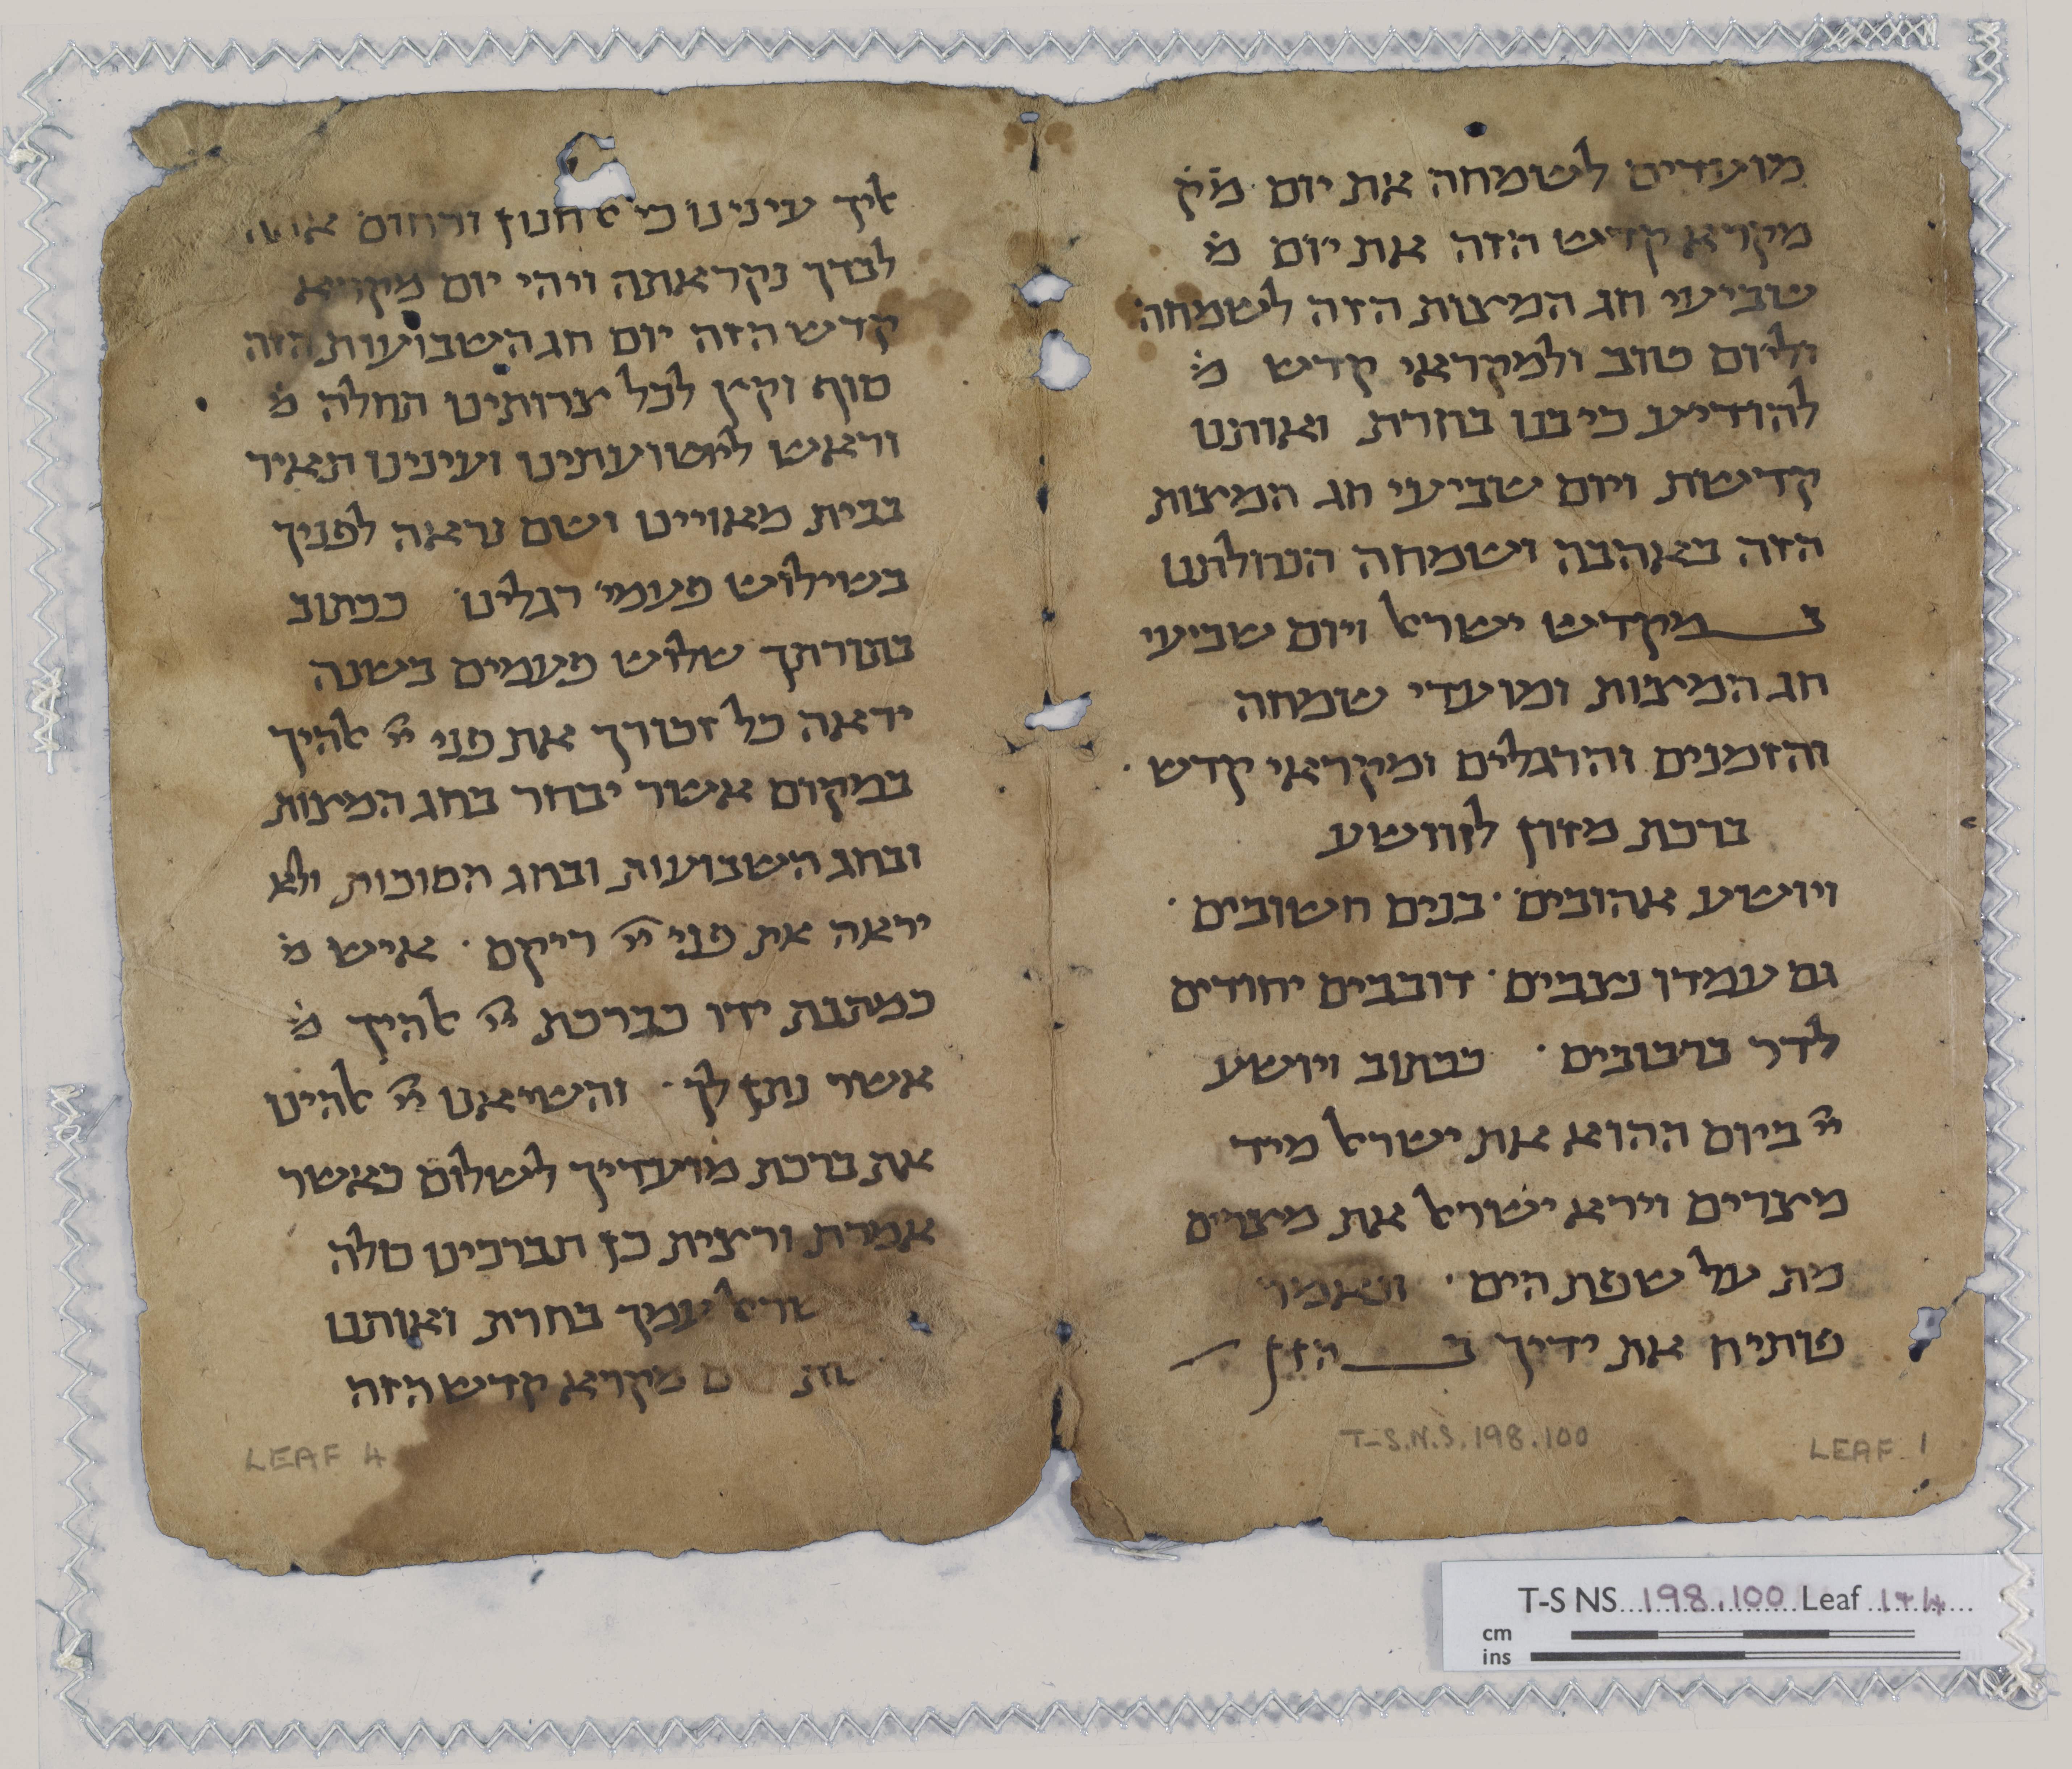 מועדים לשמחה את יום מק
מקרא קדש הזה את יום מ
שביעי חג המיצות הזה לשמחה
וליום טוב ולמקראי קדש מ
להודיע כי בנו בחרת ואותנו
קדישת ויום שביעי חג המיצות
הזה באהבה ושמחה הנחלתנו
ב מקדיש ישראל ויום שביעי
חג המיצות ומועדי שמחה
והזמנים והרגלים ומקראי קדש
ברכת מזון לויושע
ויושע אהובים בנים חשובים
גם עמדו נצבים דובבים יחודים
לדר ברבובים ככתוב ויושע
ייי ביום ההוא את ישראל מיד
מיצרים וירא ישראל את מיצרים
מת על שפת הים ונאמר
פותיח את ידיך ב הזן
אליך עינינו כי אל חנון ורחום
לבדך נקראתה ויהי יום מקרא
קדש הזה יום חג השבועות הזה
סוף וקיץ לכל צרותינו תחלה מ
וראש לישועתינו ועינינו תאיר
בבית מאויינו ושם נראה לפניך
בשילוש פעמי רגלינו ככתוב
בתורתך שלוש פעמים בשנה
יראה כל זכורך את פני ייי אלהיך
במקום אשר יבחר בחג המיצות
ובחג השבועות ובחג הסוכות ולא
יראה את פני ייי ריקם איש מ
כמתנת ידו כברכת ייי אלהיך מ
אשר נתן לך והשיאנו ייי אלהינו
את ברכת מועדיך לשלום כאשר
אמרת ורצית כן תברכינו סלה
עמך בחרת ואותנו
מקרא קדש הזה
LEAF 4
T-S.N.S. 198.100
LEAF 1
T-S NS 198.100 Leaf 1+4
cm
ins